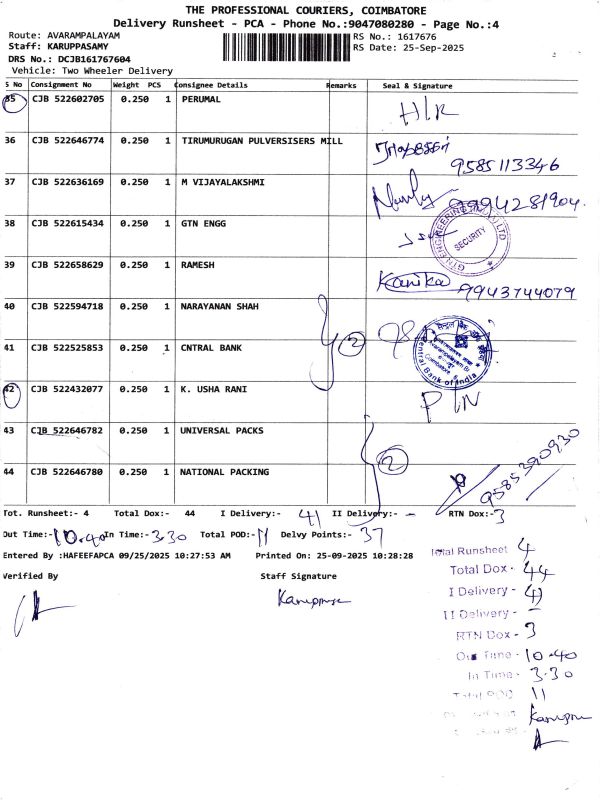 THE PROFESSIONAL COURIERS, COIMBATORE
Delivery Runsheet - PCA - Phone No.:9047080280 - Page No.:4
Route: AVARAMPALAYAM
RS No.: 1617676
Staff: KARUPPASAMY
RS Date: 25-Sep-2025
DRS No.: DCJB161767604
Vehicle: Two Wheeler Delivery
S No Consignment No Weight PCS Consignee Details Remarks Seal & Signature
35 CJB 522602705 0.250 1 PERUMAL
H/R
36 CJB 522646774 0.250 1 TIRUMURUGAN PULVERSISERS MILL
9585113346
37 CJB 522636169 0.250 1 M VIJAYALAKSHMI
9994281904
38 CJB 522615434 0.250 1 GTN ENGG
SECURITY
39 CJB 522658629 0.250 1 RAMESH
Kanika 9943744079
40 CJB 522594718 0.250 1 NARAYANAN SHAH
41 CJB 522525853 0.250 1 CNTRAL BANK
2
Central Bank of India
42 CJB 522432077 0.250 1 K. USHA RANI
P/N
43 CJB 522646782 0.250 1 UNIVERSAL PACKS
2
9585390930
44 CJB 522646780 0.250 1 NATIONAL PACKING
Tot. Runsheet:- 4 Total Dox:- 44 I Delivery:- 41 II Delivery:- - RTN Dox:- 3
Out Time:- 10.40 In Time:- 3.30 Total POD:- 11 Delvy Points:- 37
Entered By :HAFEEFAPCA 09/25/2025 10:27:53 AM Printed On: 25-09-2025 10:28:28
Verified By Staff Signature
Total Runsheet 4
Total Dox - 44
I Delivery - 41
II Delivery - -
RTN Dox - 3
Out Time - 10.40
In Time - 3.30
Total POD 11